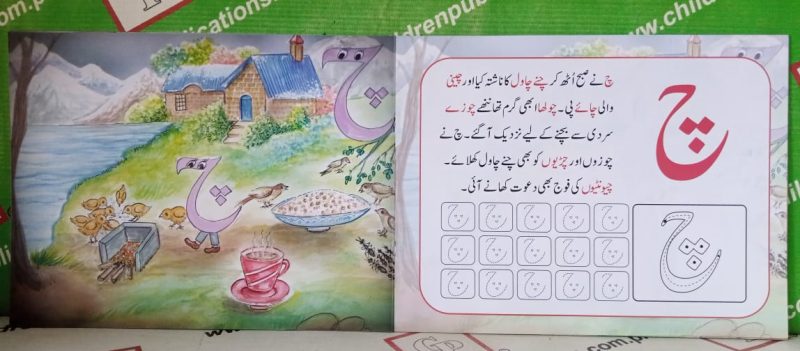 چ
چ نے صبح اُٹھ کر چنے چاول کا ناشتہ کیا اور چینی
والی چائے پی۔ چولھا ابھی گرم تھا ننھے چوزے
سردی سے بچنے کے لیے نزدیک آ گئے۔ چ نے
چوزوں اور چڑیوں کو بھی چنے چاول کھلائے۔
چیونٹیوں کی فوج بھی دعوت کھانے آئی۔
چ
چ
چ چ چ چ چ
چ چ چ چ چ
چ چ چ چ چ
چ